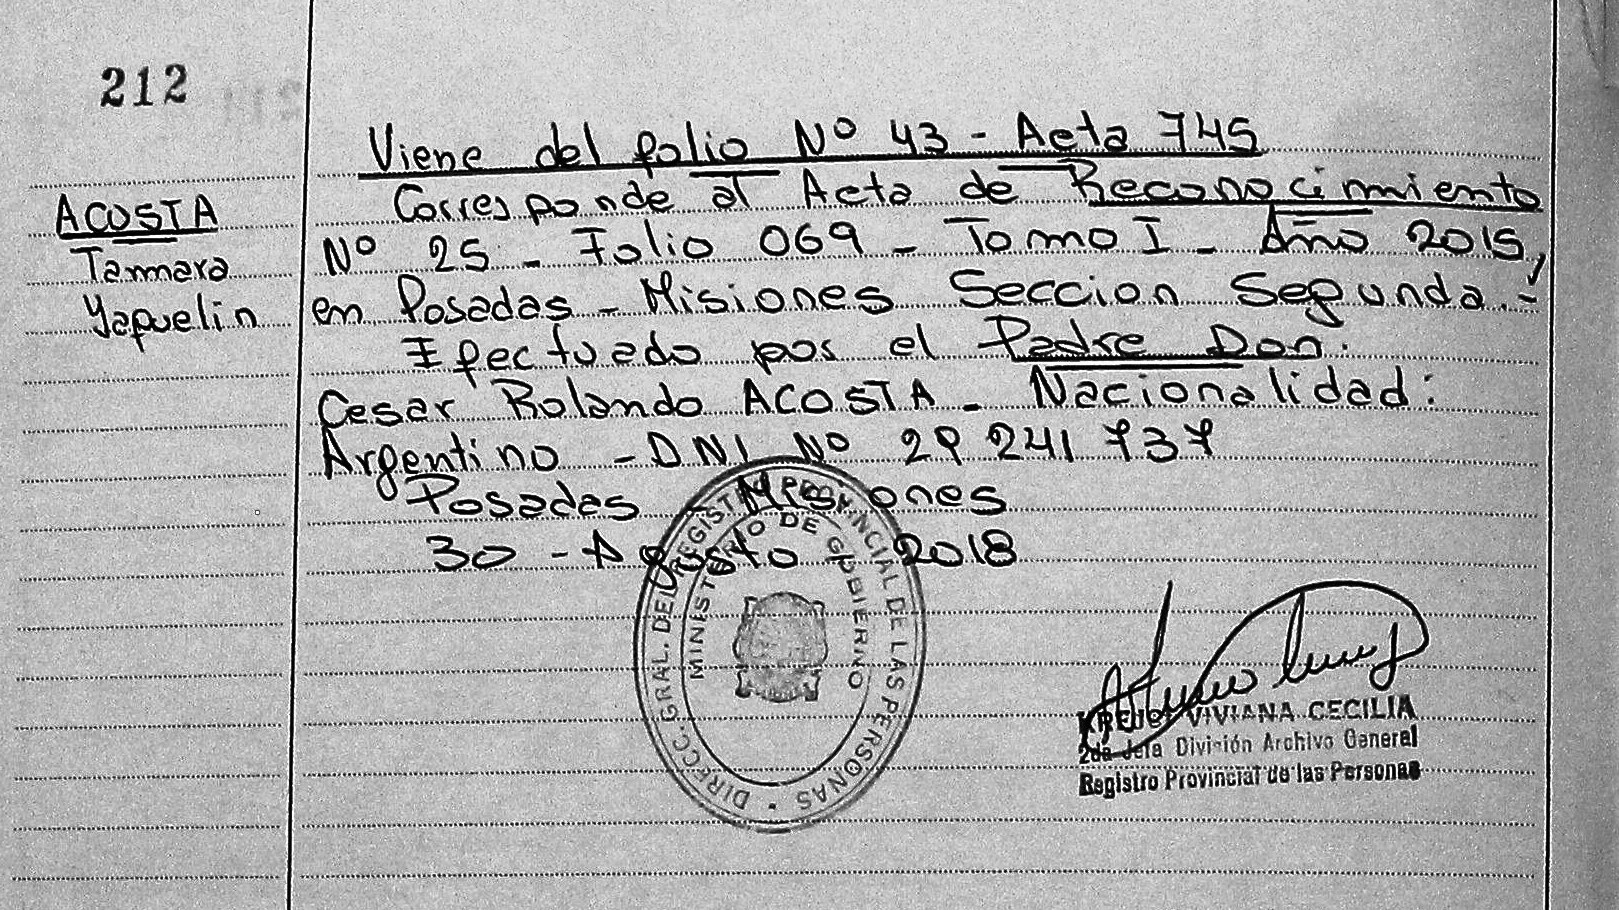 212
ACOSTA
Tammara
Yaquelin
Viene del folio Nº 43 - Acta 745
Corresponde al Acta de Reconocimiento
Nº 25 - Folio 069 - Tomo I - Año 2015,
en Posadas - Misiones Seccion Segunda.-
Efectuado por el Padre Don:
Cesar Rolando ACOSTA - Nacionalidad:
Argentino - DNI Nº 29 241 737
Posadas - Misiones
30 - Agosto 2018
DIRECC. GRAL. DEL REGISTRO PROVINCIAL DE LAS PERSONAS
MINISTERIO DE GOBIERNO
VIVIANA CECILIA
2da Jefa División Archivo General
Registro Provincial de las Personas